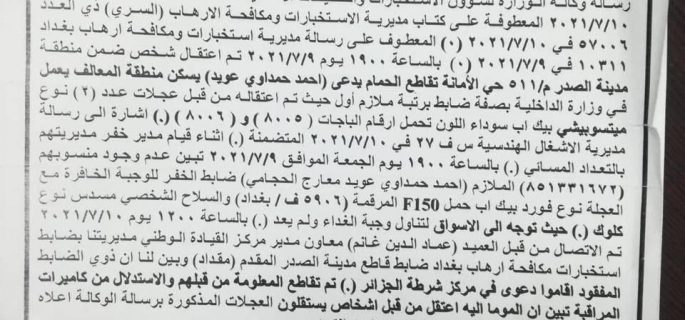 رسالة وكالة الوزارة لشؤون الاستخبارات
٢٠٢١/٧/١٠ المعطوفة على كتاب مديرية الاستخبارات ومكافحة الارهاب (السري) ذي العدد
٥٧٠٠٦ في ٢٠٢١/٧/١٠ (٠) المعطوف على رسالة مديرية استخبارات ومكافحة ارهاب بغداد
١٠٣١١ في ٢٠٢١/٧/٩ (٠) بالساعة ١٩٠٠ يوم ٢٠٢١/٧/٩ تم اعتقال شخص ضمن منطقة
مدينة الصدر م/٥١١ حي الأمانة تقاطع الحمام يدعى (احمد حمداوي عويد) يسكن منطقة المعالف يعمل
في وزارة الداخلية بصفة ضابط برتبة ملازم أول حيث تم اعتقاله من قبل عجلات عدد (٢) نوع
ميتسوبيشي بيك اب سوداء اللون تحمل ارقام الباجات (٨٠٠٥) و (٨٠٠٦) (.) اشارة الى رسالة
مديرية الاشغال الهندسية س ف ٢٧ في ٢٠٢١/٧/١٠ المتضمنة (.) اثناء قيام مدير خفر مديريتهم
بالتعداد المسائي (.) بالساعة ١٩٠٠ يوم الجمعة الموافق ٢٠٢١/٧/٩ تبين عدم وجود منسوبهم
(٨٥١٣٣١٦٧٢) الملازم (احمد حمداوي عويد معارج الحجامي) ضابط الخفر للوجبة الخافرة مع
العجلة نوع فورد بيك اب حمل F150 المرقمة (٥٩٠٦ ف/ بغداد) والسلاح الشخصي مسدس نوع
كلوك (.) حيث توجه الى الاسواق لتناول وجبة الغداء ولم يعد (.) بالساعة ١٢٠٠ يوم ٢٠٢١/٧/١٠
تم الاتصال من قبل العميد (عماد الدين غانم) معاون مدير مركز القيادة الوطني مديريتنا بضابط
استخبارات مكافحة ارهاب بغداد ضابط قاطع مدينة الصدر المقدم (مقداد) وبين لنا ان ذوي الضابط
المفقود اقاموا دعوى في مركز شرطة الجزائر (.) تم تقاطع المعلومة من قبلهم والاستدلال من كاميرات
المراقبة تبين ان الموما اليه اعتقل من قبل اشخاص يستقلون العجلات المذكورة برسالة الوكالة اعلاه